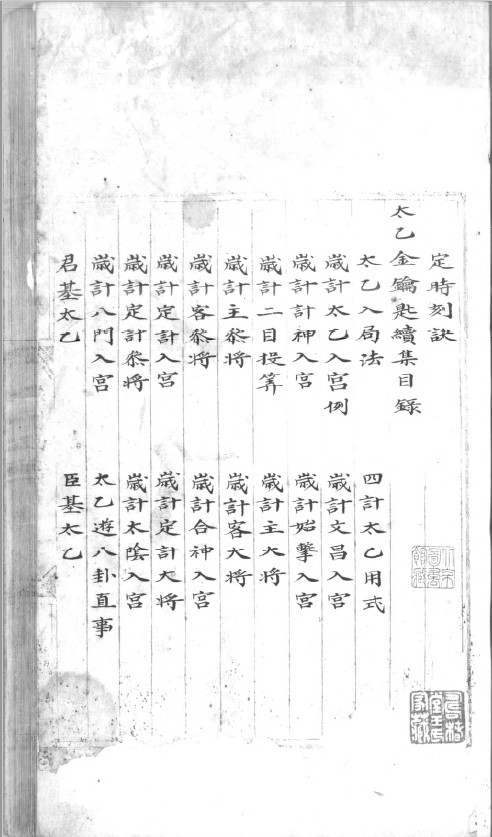 定時刻訣
太乙金鑰匙續集目錄
太乙入局法　四計太乙用式
歲計太乙入宮例　歲計文昌入宮
歲計計神入宮　歲計始擊入宮
歲計二目投筭　歲計主大將
歲計主叅將　歲計客大將
歲計客叅將　歲計合神入宮
歲計定計入宮　歲計定計大將
歲計定計叅將　歲計太陰入宮
歲計八門入宮　太乙遊八卦直事
君基太乙　臣基太乙